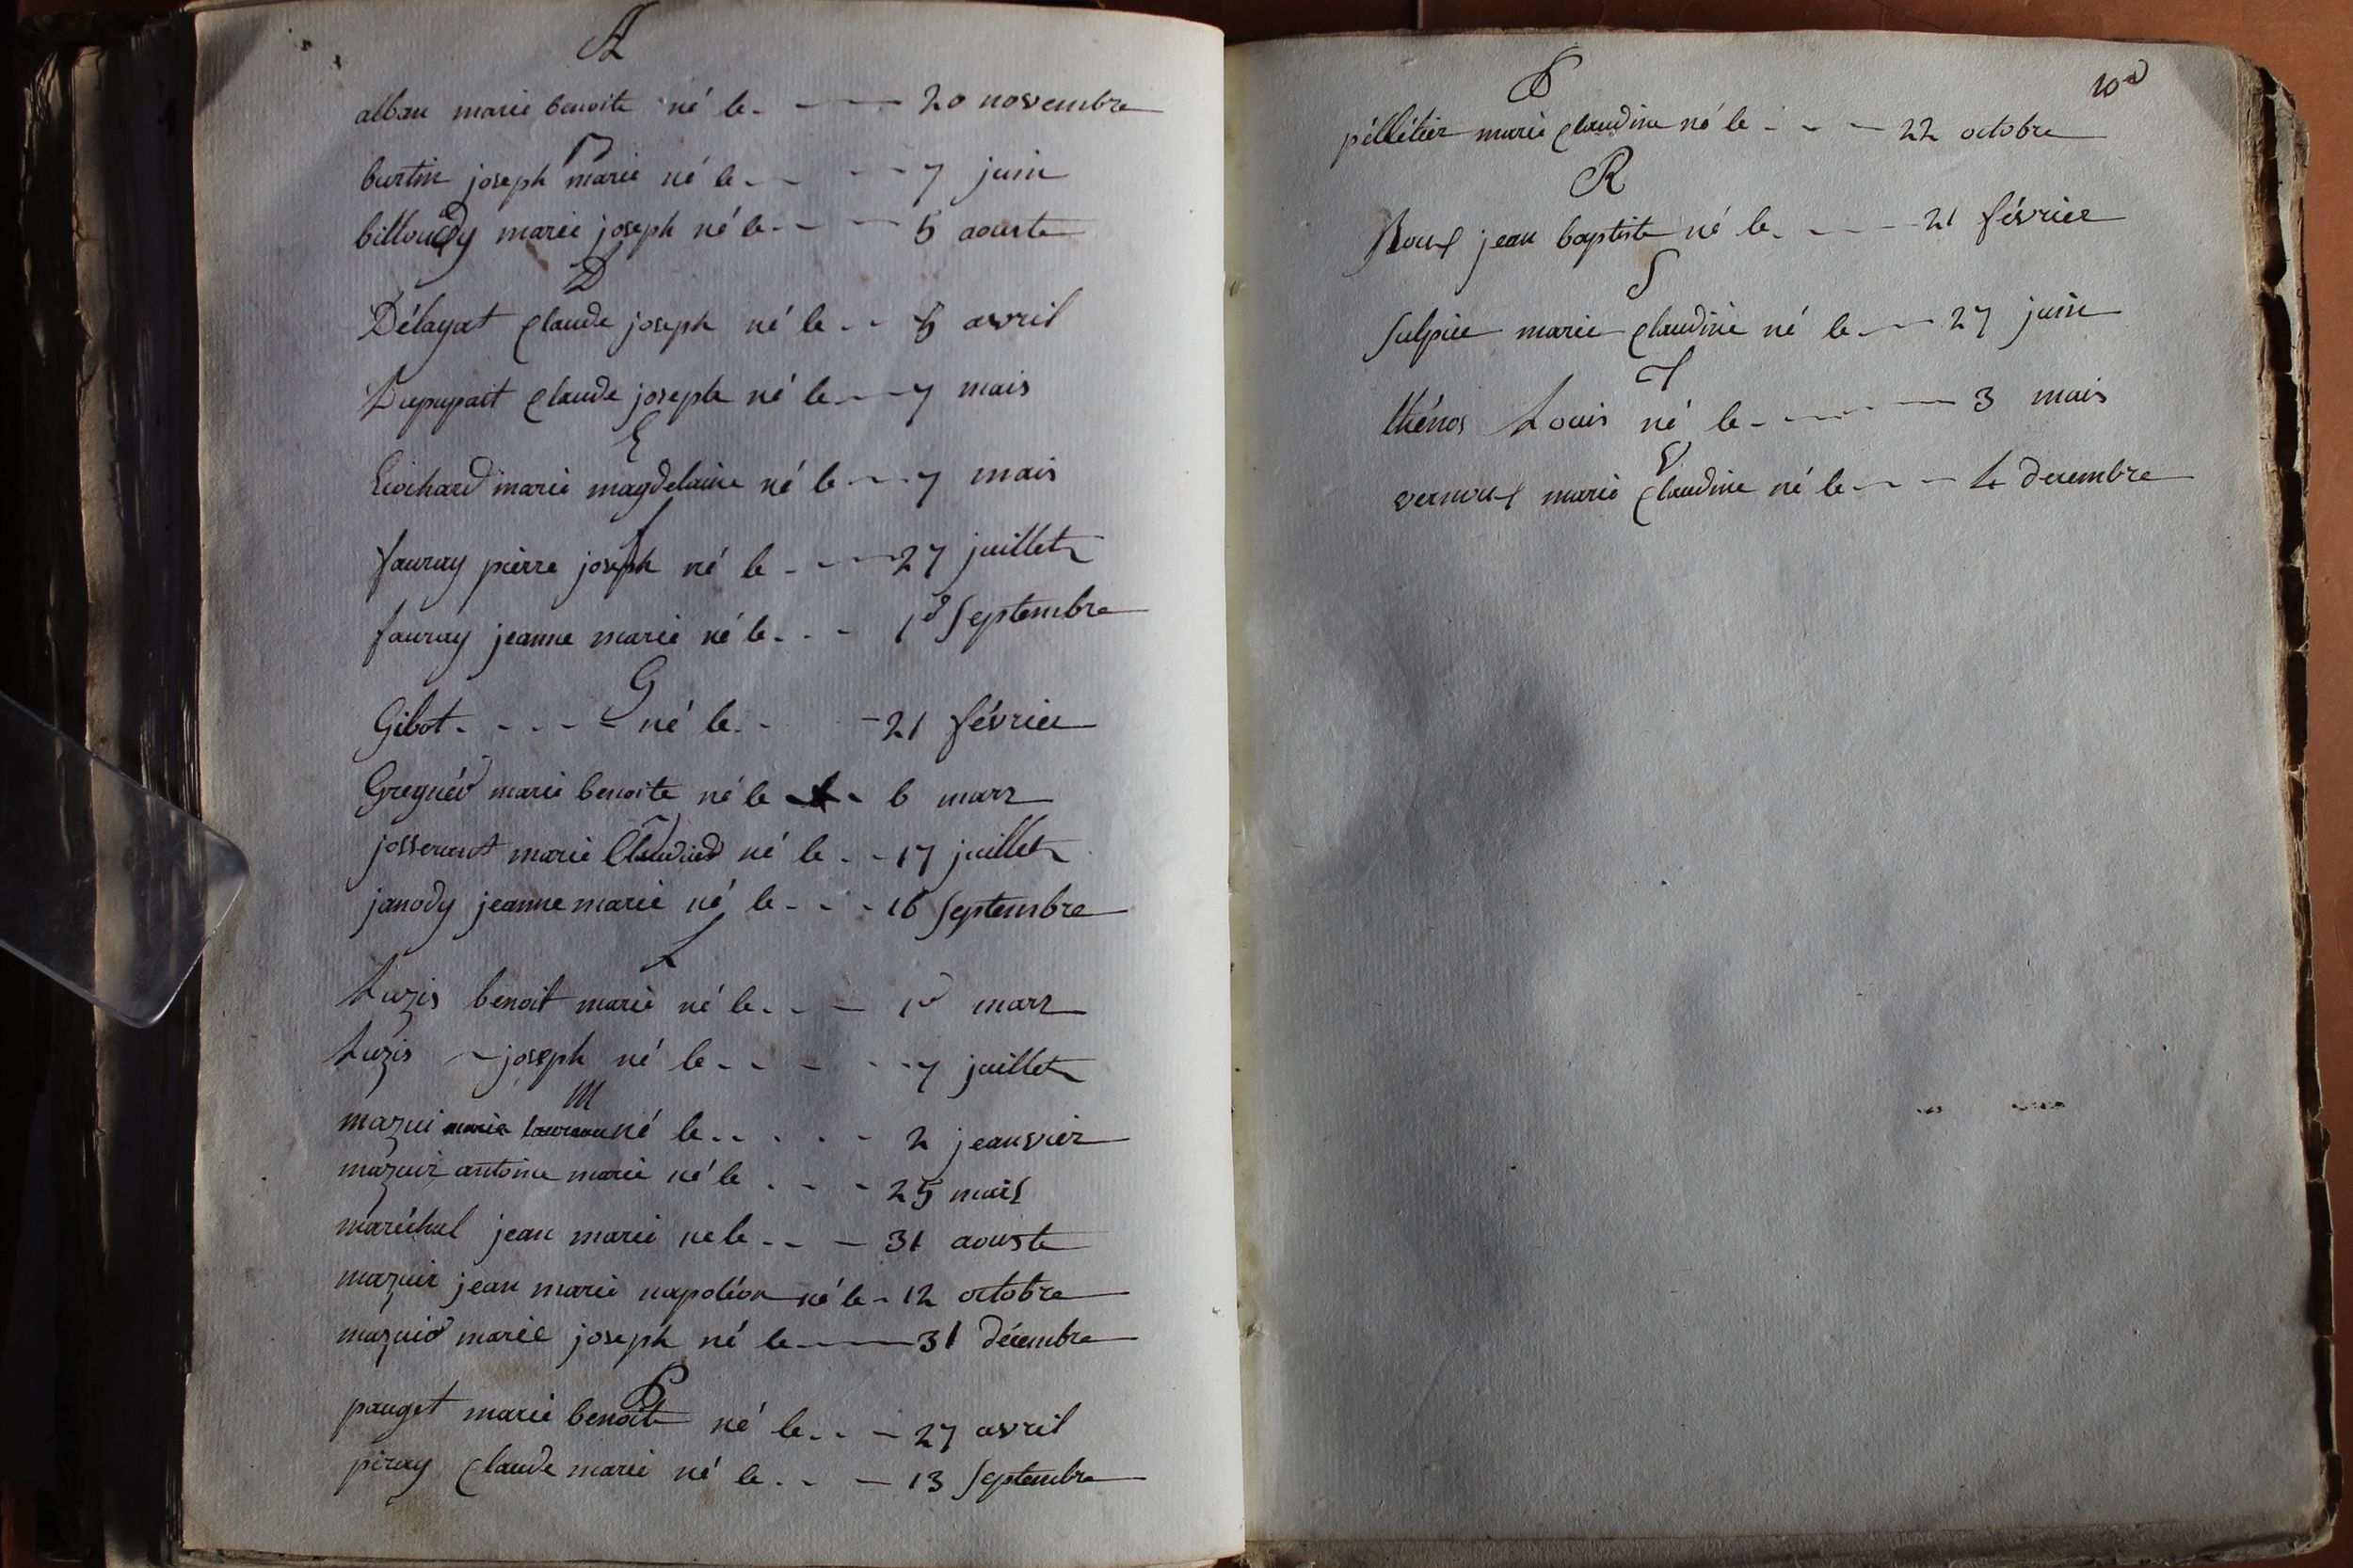 A
alban marie benoite né le - - - 20 novembre
B
burtin joseph marie né le - - - - 7 juin
billoudy marie joseph né le - - - 5 aouste
D
Délayat claude joseph né le - - 5 avril
Dupupait claude joseph né le - - 7 mais
E
Eiochard marie magdelaine né le - - 7 mais
f
fauray pierre joseph né le - - - 27 juillet
fauray jeanne marie né le - - - 1er Septembre
G
Gibot - - - - - né le - - 21 février
marie benoite né le - - 6 mars
josserant marie né le - - 17 juillet
janody jeanne marie né le - - - 16 Septembre
L
Luzis benoit marie né le - - - 1er mars
Luzis - joseph né le - - - - - 7 juillet
M
mazui né le - - - - - 2 jeanvier
mazuir antoine marie né le - - - 25 mais
maréchal jean marie ne le - - - 31 aouste
mazuir jean marie napoléon né le - 12 octobre
mazuir marie joseph né le - - - 31 décembre
P
pauget marie benoit né le - - - 27 avril
piray claude marie né le - - - 13 Septembre
P
péllétier marie claudine né le - - - 22 octobre
R
Roux jean baptiste né le - - - - 21 février
S
Sulpice marie claudine né le - - 27 juin
T
thénos Louis né le - - - - - 3 mais
V
vernoux marie claudine né le - - - 4 decembre